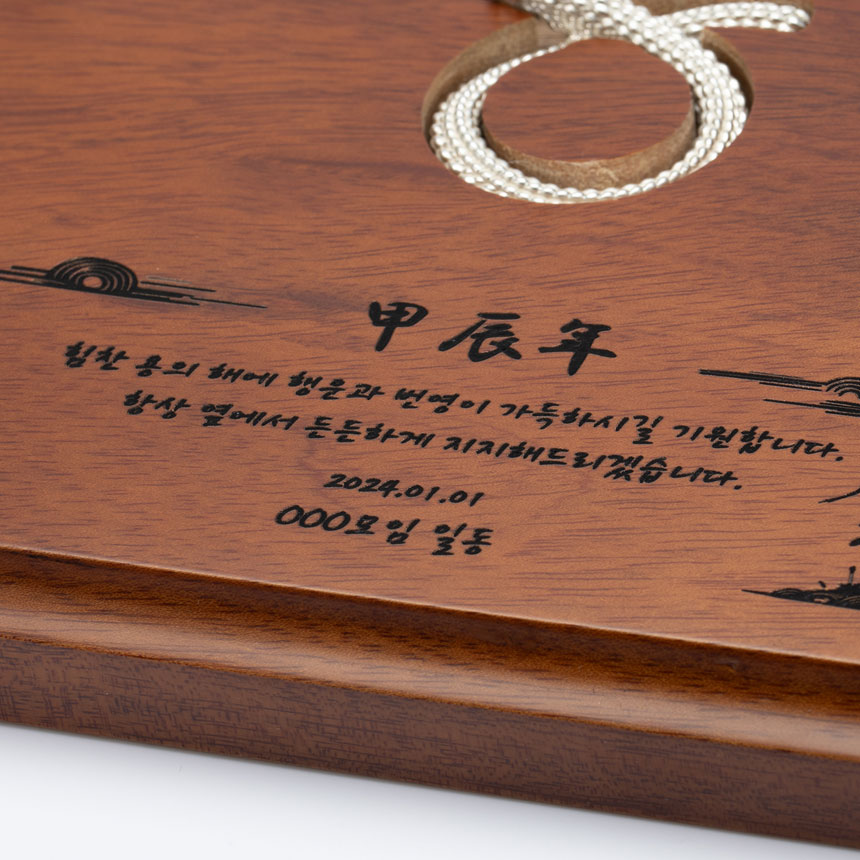 甲辰年
힘찬 용의 해에 행운과 번영이 가득하시길 기원합니다.
항상 옆에서 든든하게 지지해드리겠습니다.
2024.01.01
OOO모임 일동